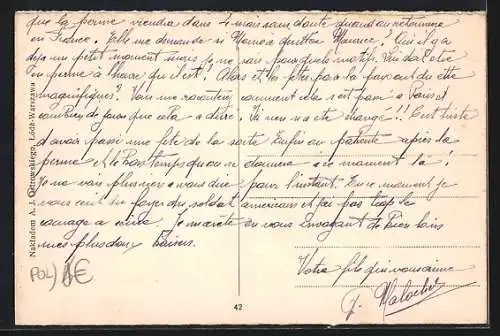 que la perme viendra dans 4 mois sans doute quand on retournera
en France. Elle me demande si Maurice quitter Maurice? Oui il y a
déjà un petit moment mais je ne sais pas quels motifs. Lui doit être
en perme à l'heure qu'il est! Alors et les fêtes pas la
magnifiques? Vous me raconterez comment cela s'est passé à Paris et
combien de jours que cela a duré. Ici rien n'a été changé!!! C'est triste
d'avoir passé une fête de la sorte. Enfin en patiente après la
perme et le bon temps qu'on se donnera à ce moment là!
Je ne vois plus rien à vous dire pour l'instant. En ce moment je
vous écris au foyer du soldat américain et j'ai pas trop le
courage à écrire. Je m'arrête en vous envoyant de bien loin
mes plus doux baisers.
Votre fils qui vous aime
J. Malochet
Nakładem A. J. Ostrowskiego, Łódź-Warszawa
POL) 6€
42